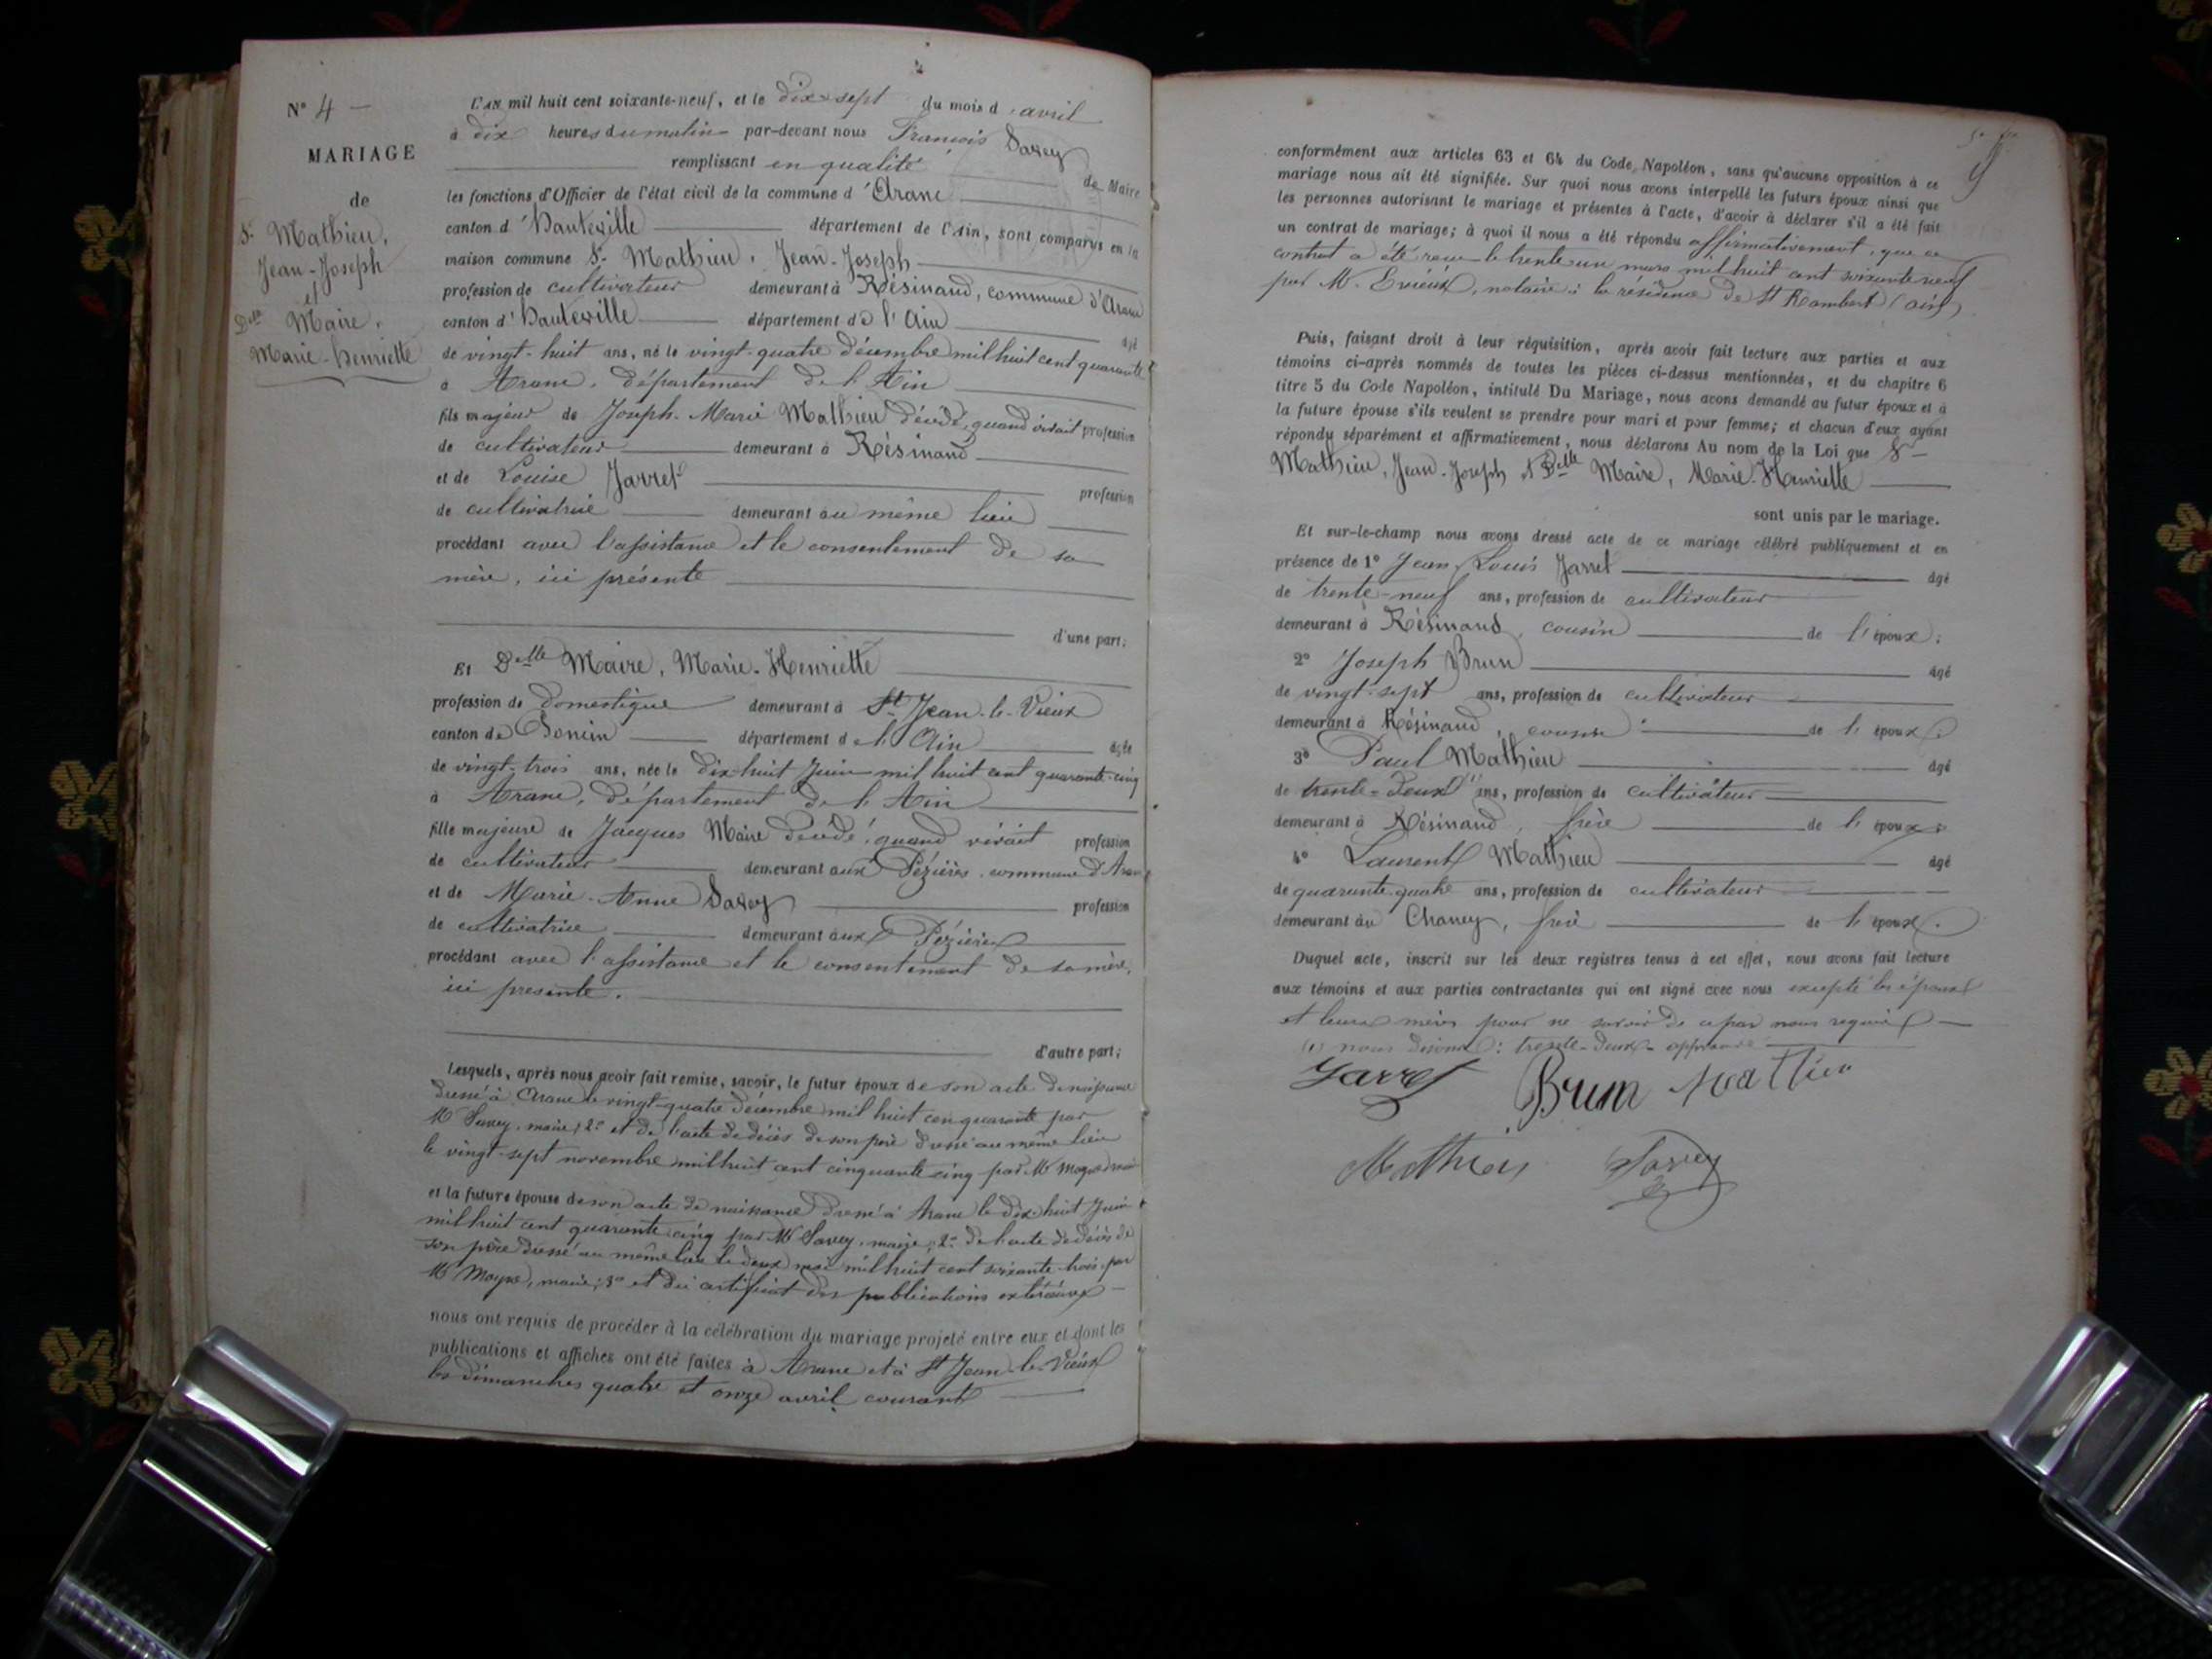 N° 4 —
MARIAGE
de
Sr Mathieu,
Jean-Joseph
et
Delle Maire,
Marie-henriette
L'an mil huit cent soixante-neuf, et le dix-sept du mois d'avril
à dix heures du matin par-devant nous François Savey
remplissant en qualité de Maire
les fonctions d'Officier de l'état civil de la commune d'Aranc
canton d'hauteville département de l'Ain, sont comparus en la
maison commune Sr Mathieu, Jean-Joseph
profession de cultivateur demeurant à Résinand, commune d'Aranc
canton d'hauteville département de l'Ain âgé
de vingt-huit ans, né le vingt-quatre décembre mil huit cent quarante
à Aranc, département de l'Ain
fils majeur de Joseph-Marie Mathieu décédé, quand vivait profession
de cultivateur demeurant à Résinand
et de Louise Jarret profession
de cultivatrice demeurant au même lieu
procédant avec l'assistance et le consentement de sa
mère, ici présente
d'une part;
Et Delle Maire, Marie-Henriette
profession de domestique demeurant à St Jean-le-Vieux
canton de Poncin département de l'Ain âgée
de vingt-trois ans, née le dix-huit Juin mil huit cent quarante-cinq
à Aranc, département de l'Ain
fille majeure de Jacques Maire décédé, quand vivait profession
de cultivateur demeurant aux Pézières, commune d'Aranc
et de Marie-Anne Savey profession
de cultivatrice demeurant aux Pézières
procédant avec l'assistance et le consentement de sa mère,
ici présente.
d'autre part;
Lesquels, après nous avoir fait remise, savoir, le futur époux de son acte de naissance
dressé à Aranc le vingt-quatre décembre mil huit cent quarante par
M Savey, maire; 2° et de l'acte de décès de son père dressé au même lieu
le vingt-sept novembre mil huit cent cinquante cinq par M Moyne maire
et la future épouse de son acte de naissance dressé à Aranc le dix huit Juin
mil huit cent quarante cinq par M Savey, maire; 2° de l'acte de décès de
son père dressé au même lieu le deux mai mil huit cent soixante-trois par
M Moyne, maire; 3° et du certificat des publications extérieures
nous ont requis de procéder à la célébration du mariage projeté entre eux et dont les
publications et affiches ont été faites à Aranc et à St Jean-le-Vieux
les dimanches quatre et onze avril courant
conformément aux articles 63 et 64 du Code Napoléon, sans qu'aucune opposition à ce
mariage nous ait été signifiée. Sur quoi nous avons interpellé les futurs époux ainsi que
les personnes autorisant le mariage et présentes à l'acte, d'avoir à déclarer s'il a été fait
un contrat de mariage; à quoi il nous a été répondu affirmativement, que ce
contrat a été reçu le trente un mars mil huit cent soixante neuf
par M. Evieux, notaire à la résidence de St Rambert (ain)
Puis, faisant droit à leur réquisition, après avoir fait lecture aux parties et aux
témoins ci-après nommés de toutes les pièces ci-dessus mentionnées, et du chapitre 6
titre 5 du Code Napoléon, intitulé Du Mariage, nous avons demandé au futur époux et à
la future épouse s'ils veulent se prendre pour mari et pour femme; et chacun d'eux ayant
répondu séparément et affirmativement, nous déclarons Au nom de la Loi que Sr
Mathieu, Jean-Joseph et Delle Maire, Marie-Henriette
sont unis par le mariage.
Et sur-le-champ nous avons dressé acte de ce mariage célébré publiquement et en
présence de 1° Jean Louis Jarret âgé
de trente-neuf ans, profession de cultivateur
demeurant à Résinand, cousin de l'époux;
2° Joseph Brun âgé
de vingt-sept ans, profession de cultivateur
demeurant à Résinand, cousin de l'époux;
3° Paul Mathieu âgé
de trente-deux (1) ans, profession de cultivateur
demeurant à Résinand, frère de l'époux;
4° Laurent Mathieu âgé
de quarante-quatre ans, profession de cultivateur
demeurant au Chaney, frère de l'époux.
Duquel acte, inscrit sur les deux registres tenus à cet effet, nous avons fait lecture
aux témoins et aux parties contractantes qui ont signé avec nous excepté les époux
et leurs mères pour ne savoir de ce par nous requis
(1) nous disons: trente-deux- approuvé
Jarret Brun Mathieu
Mathieu Savey